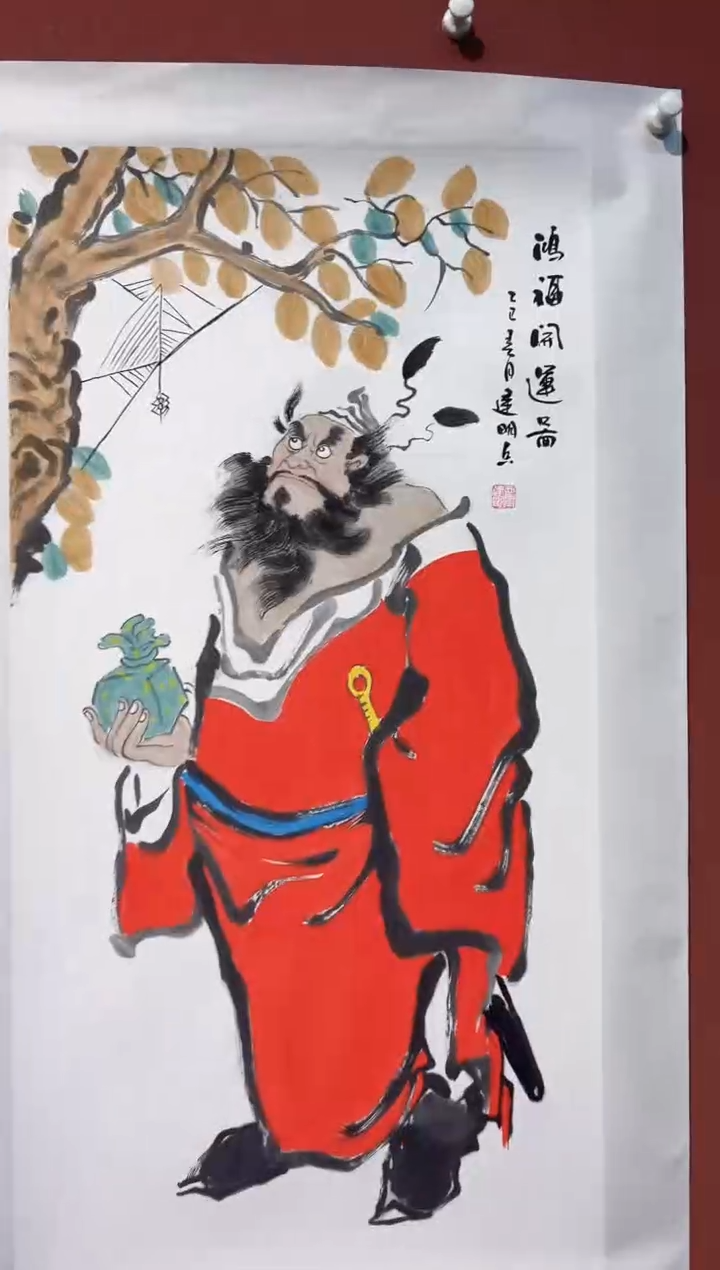 鴻福開運图
乙巳春月建明